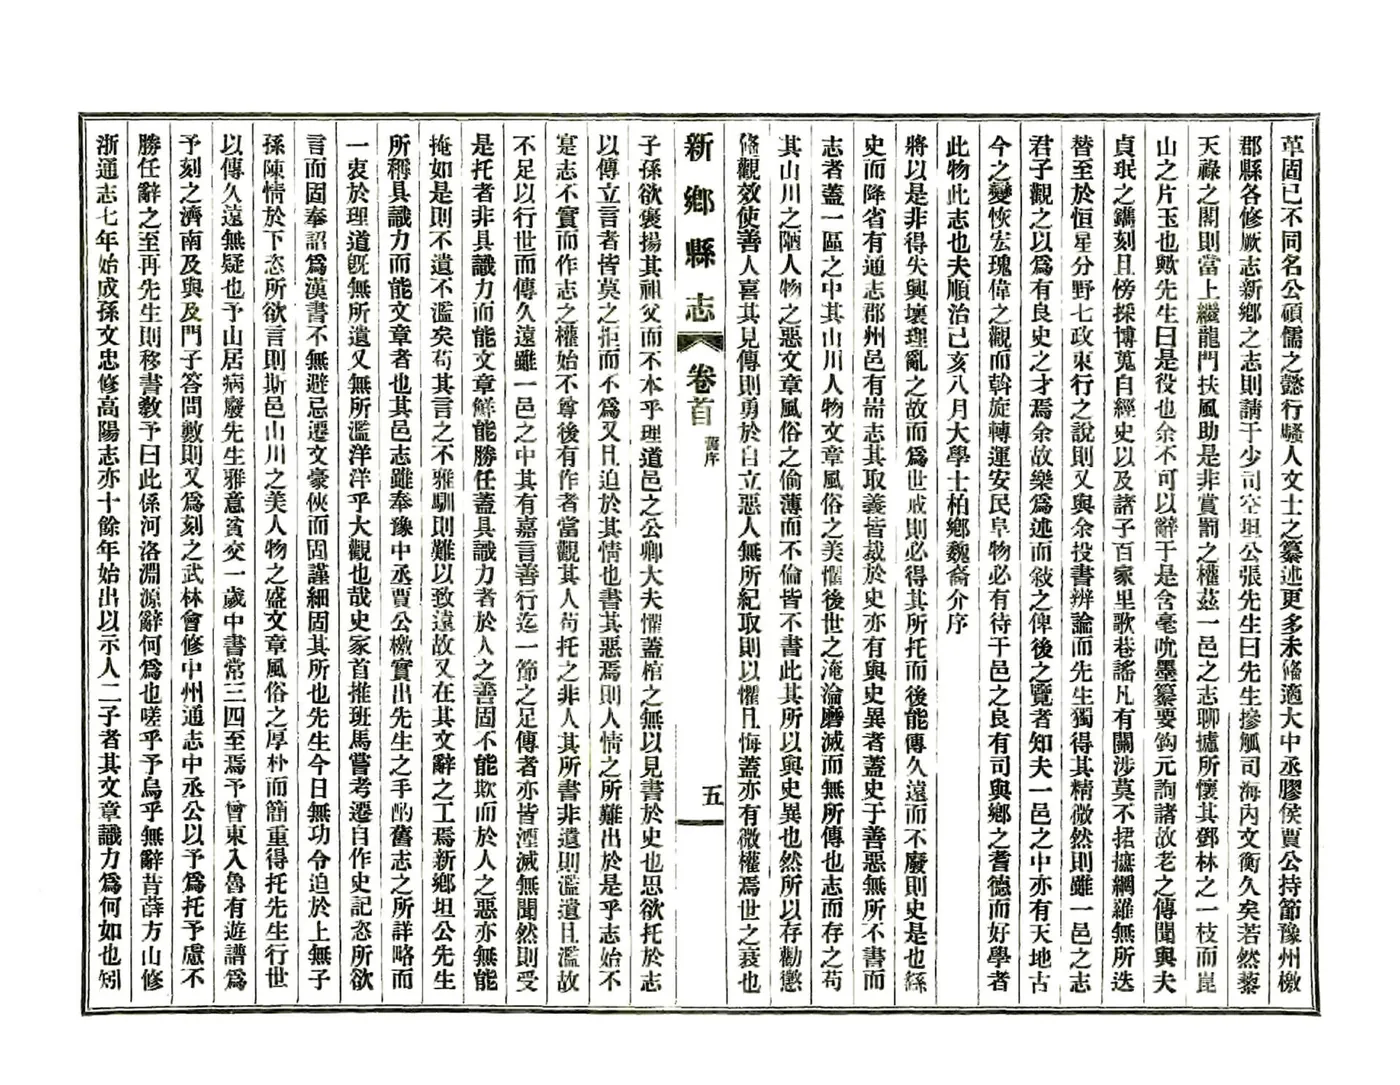 革固已不同名公碩儒之懿行騷人文士之纂述更多未修適大中丞膠侯賈公持節豫州檄
郡縣各修厥志新鄉之志則請于少司空坦公張先生曰先生摻觚司海內文衡久矣若然藜
天祿之閣則當上繼龍門扶風助是非賞罰之權茲一邑之志聊攄所懷其鄧林之一枝而崑
山之片玉也歟先生曰是役也余不可以辭于是含毫吮墨纂要鈎元詢諸故老之傳聞與夫
貞珉之鐫刻且傍採博蒐自經史以及諸子百家里歌巷謠凡有關涉莫不捃摭綱羅無所迭
替至於恒星分野七政東行之說則又與余投書辨論而先生獨得其精微然則雖一邑之志
君子觀之以爲有良史之才焉余故樂爲述而敍之俾後之覽者知夫一邑之中亦有天地古
今之變恢宏瑰偉之觀而斡旋轉運安民阜物必有待于邑之良有司與鄉之耆德而好學者
此物此志也夫順治己亥八月大學士柏鄉魏裔介序
將以是非得失興壞理亂之故而爲世戒則必得其所托而後能傳久遠而不廢則史是也繇
史而降省有通志郡州邑有耑志其取義皆裁於史亦有與史異者蓋史于善惡無所不書而
志者蓋一區之中其山川人物文章風俗之美懼後世之淹淪磨滅而無所傳也志而存之苟
其山川之陋人物之惡文章風俗之偷薄而不倫皆不書此其所以與史異也然所以存勸懲
修觀效使善人喜其見傳則勇於自立惡人無所紀取則以懼且悔蓋亦有微權焉世之衰也
新鄉縣志 卷首 舊序 五
子孫欲褒揚其祖父而不本乎理道邑之公卿大夫懼蓋棺之無以見書於史也思欲托於志
以傳立言者皆莫之拒而不爲又且迫於其情也書其惡焉則人情之所難出於是乎志始不
寔志不實而作志之權始不尊後有作者當觀其人苟托之非人其所書非遺則濫遺且濫故
不足以行世而傳久遠雖一邑之中其有嘉言善行迄一節之足傳者亦皆湮滅無聞然則受
是托者非具識力而能文章鮮能勝任蓋具識力者於人之善固不能欺而於人之惡亦無能
掩如是則不遺不濫矣苟其言之不雅馴則難以致遠故又在其文辭之工焉新鄉坦公先生
所稱具識力而能文章者也其邑志雖奉豫中丞賈公檄實出先生之手酌舊志之所詳略而
一衷於理道旣無所遺又無所濫洋洋乎大觀也哉史家首推班馬嘗考遷自作史記恣所欲
言而固奉詔爲漢書不無避忌遷文豪俠而固謹細固其所也先生今日無功令迫於上無子
孫陳情於下恣所欲言則斯邑山川之美人物之盛文章風俗之厚朴而簡重得托先生行世
以傳久遠無疑也予山居病廢先生雅意貧交一歲中書常三四至焉予曾東入魯有遊譜爲
予刻之濟南及與及門子答問數則又爲刻之武林會修中州通志中丞公以予爲托予慮不
勝任辭之至再先生則移書敎予曰此係河洛淵源辭何爲也嗟乎予烏乎無辭昔薛方山修
浙通志七年始成孫文忠修高陽志亦十餘年始出以示人二子者其文章識力爲何如也矧